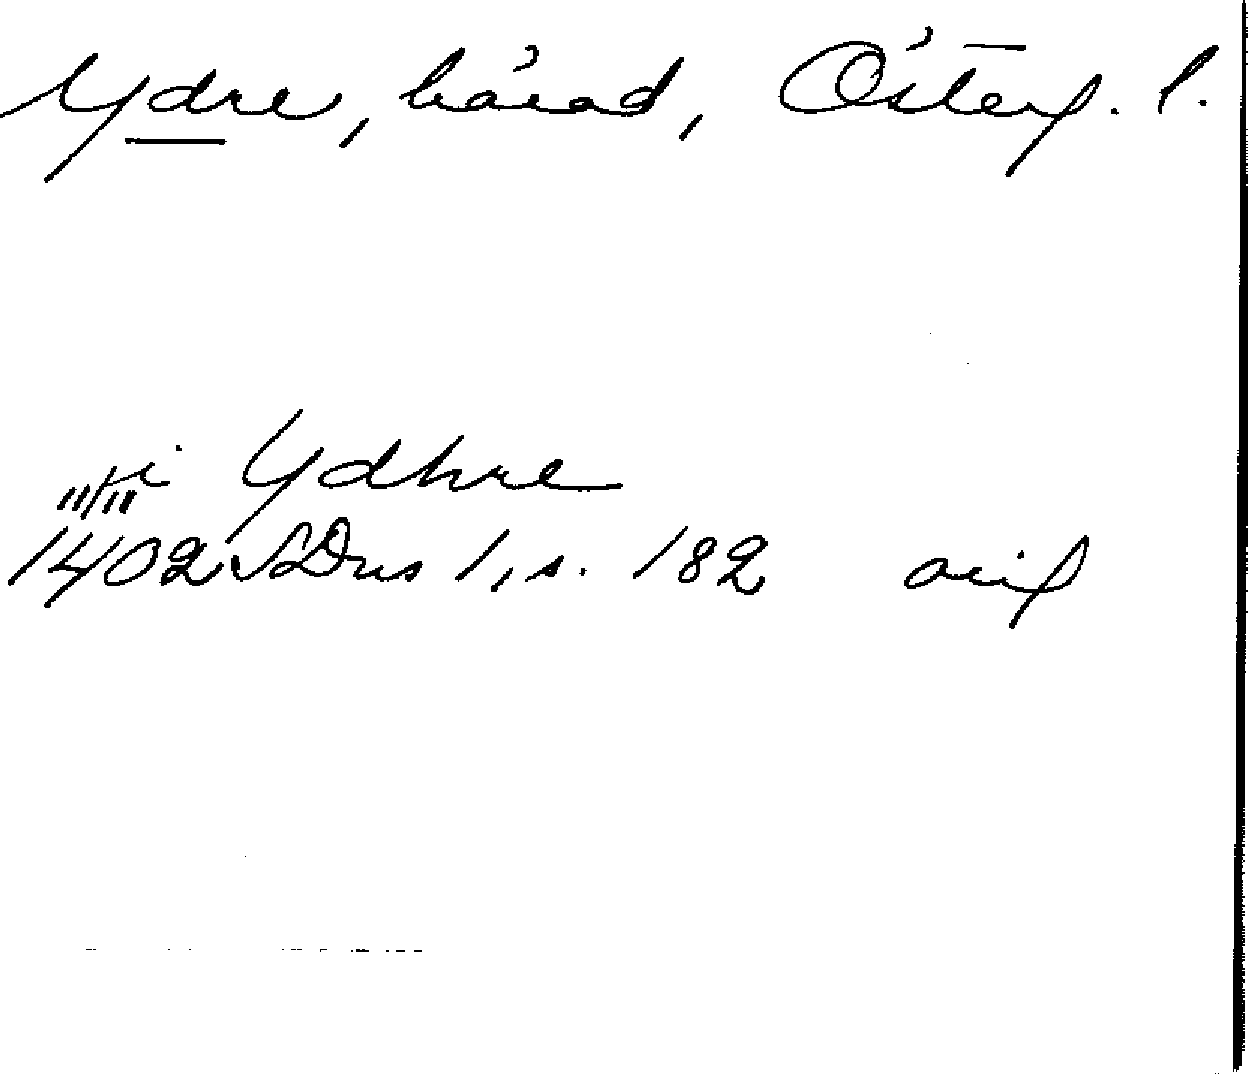 Ydre, härad, Österg. l.
i Ydhre
11/11
1402 SDns 1, s. 182 orig